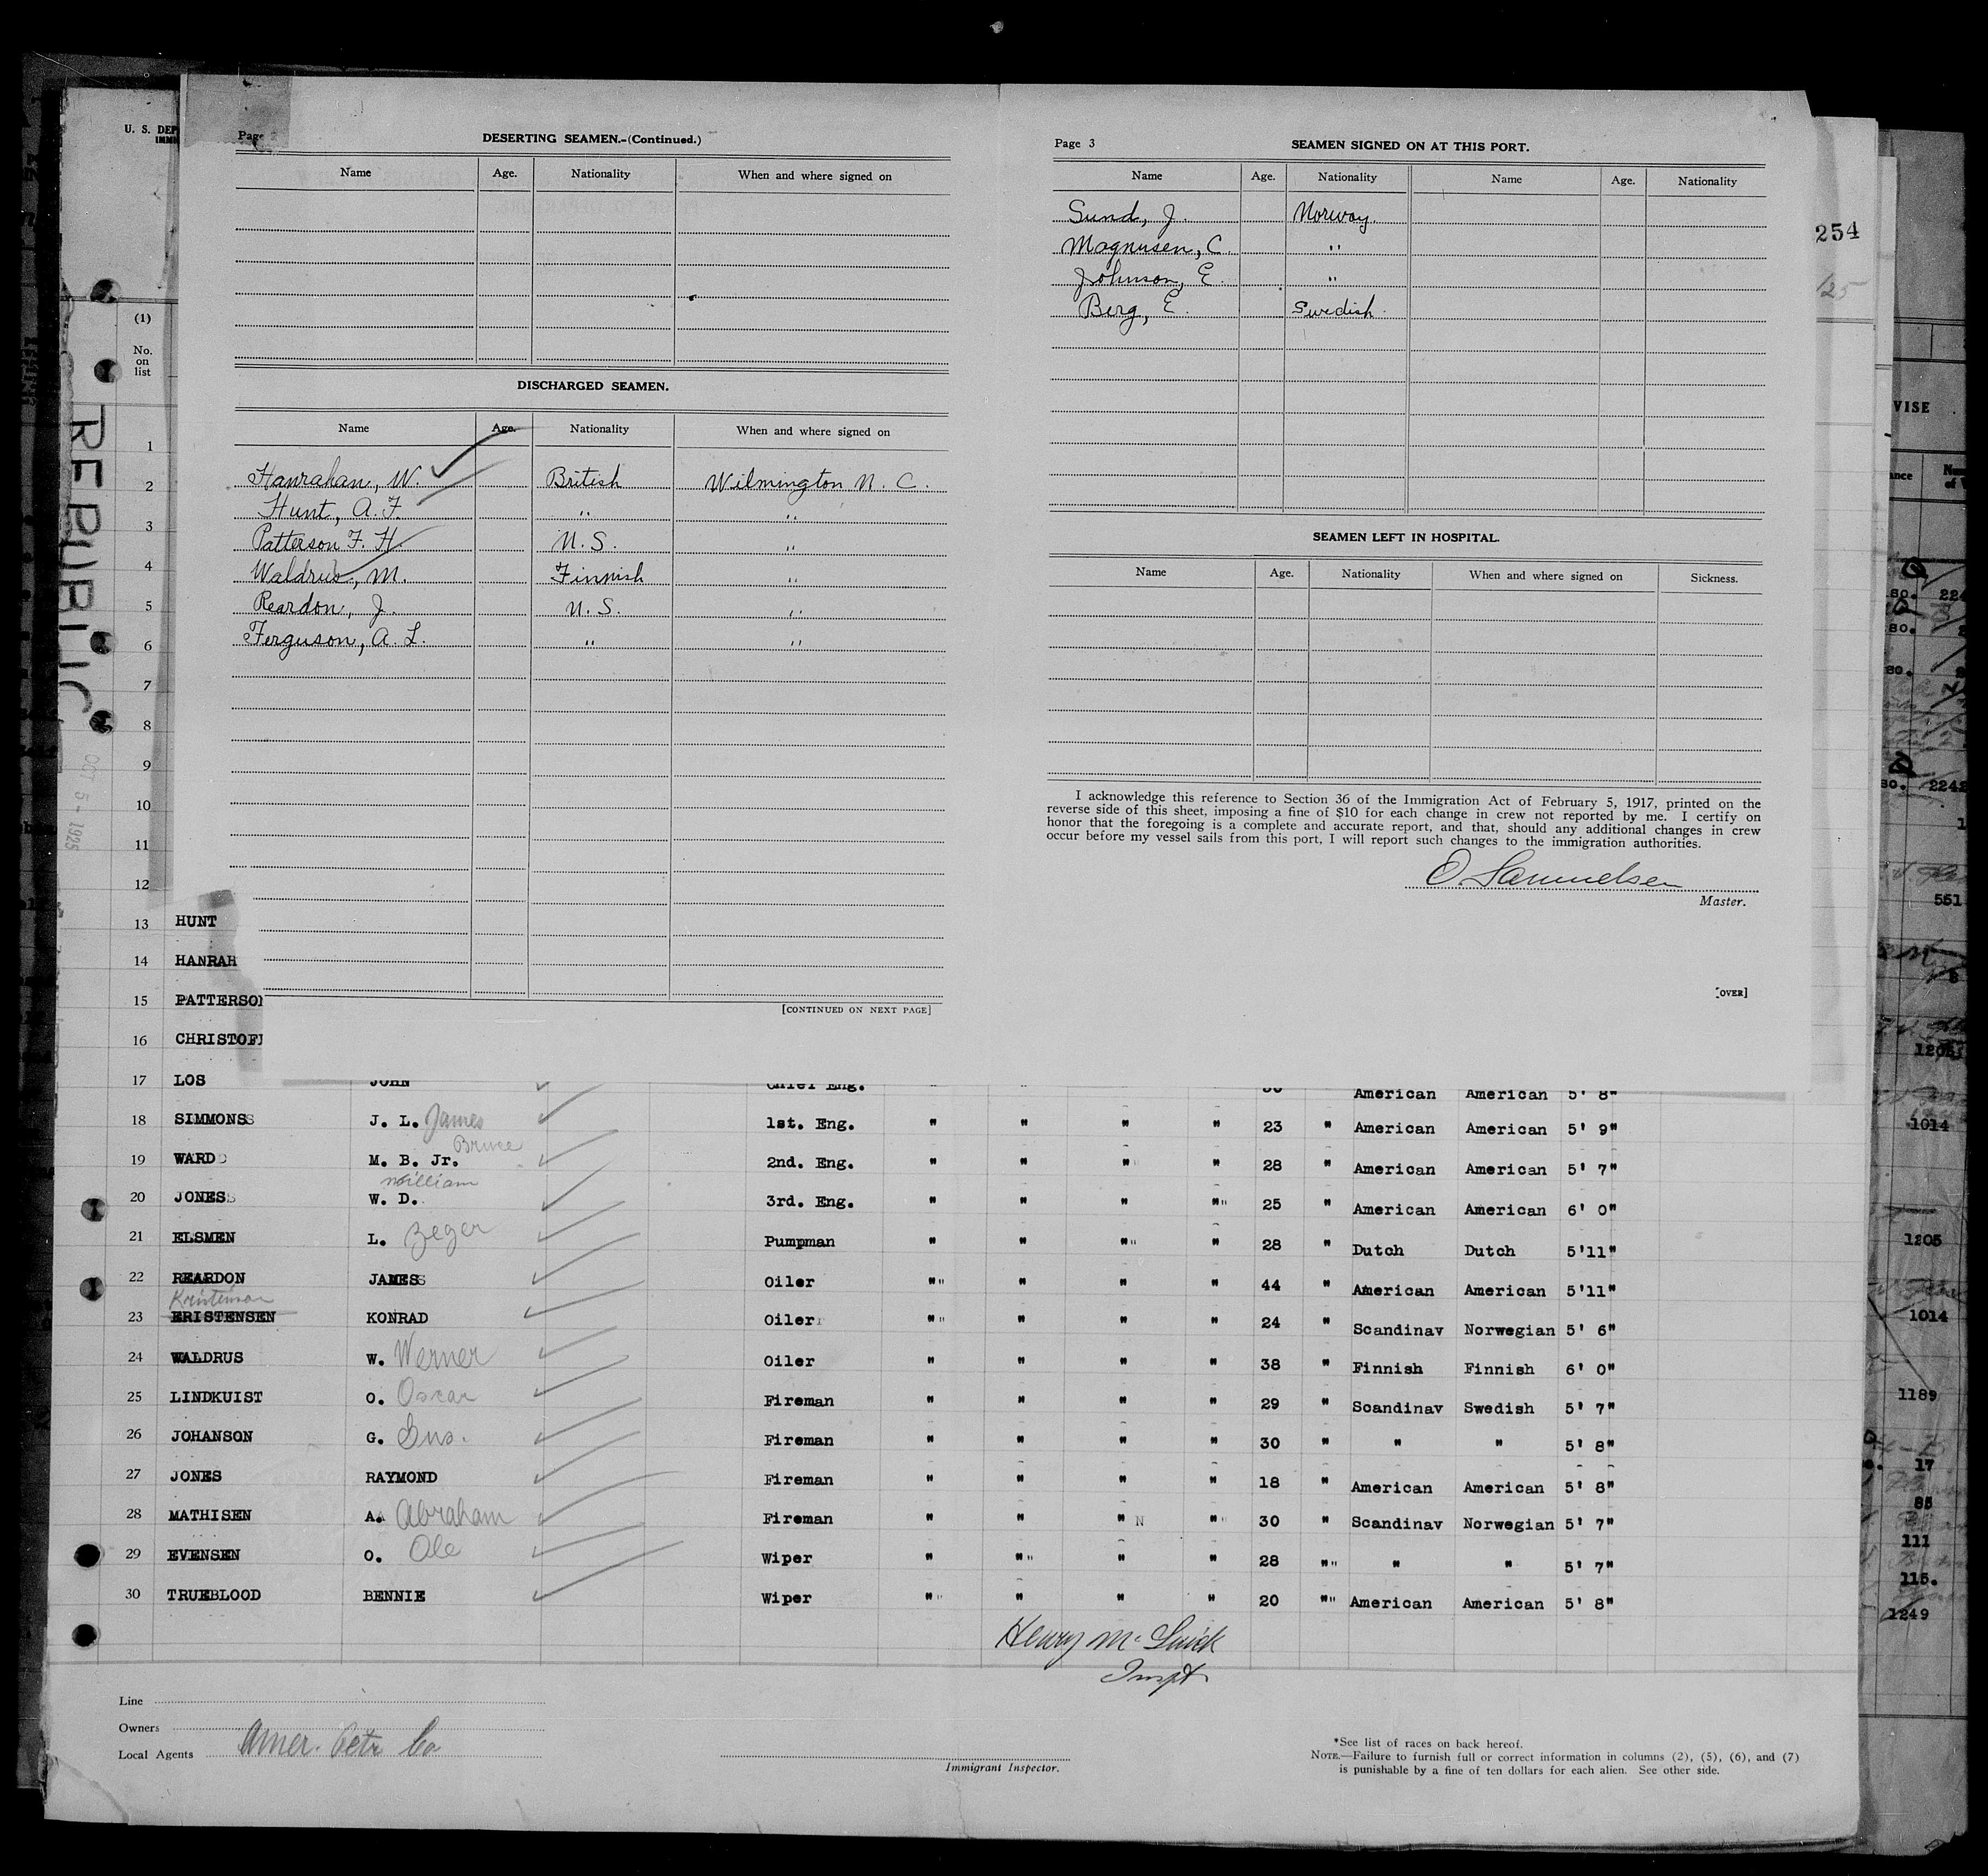 U. S. DEP
IMMI
(1)
No.
on
list
REPUBLIC
OCT 5 - 1925
1
2
3
4
5
6
7
8
9
10
11
12
Page 2
DESERTING SEAMEN.-(Continued.)
Name Age. Nationality When and where signed on
DISCHARGED SEAMEN.
Name Age. Nationality When and where signed on
Hanrahan, W. British Wilmington N. C.
Hunt, A. F. " "
Patterson F. H. U. S. "
Waldrus, M. Finnish "
Reardon, J. U. S. "
Ferguson, A. L. " "
[CONTINUED ON NEXT PAGE]
Page 3
SEAMEN SIGNED ON AT THIS PORT.
Name Age. Nationality Name Age. Nationality
Sund, J. Norway.
Magnusen, C. "
Johnson, E. "
Berg, E. Swedish.
SEAMEN LEFT IN HOSPITAL.
Name Age. Nationality When and where signed on Sickness.
I acknowledge this reference to Section 36 of the Immigration Act of February 5, 1917, printed on the
reverse side of this sheet, imposing a fine of $10 for each change in crew not reported by me. I certify on
honor that the foregoing is a complete and accurate report, and that, should any additional changes in crew
occur before my vessel sails from this port, I will report such changes to the immigration authorities.
O. Samuelsen
Master.
[OVER]
254
VISE
13 HUNT
14 HANRAH
15 PATTERSON
16 CHRISTOF
17 LOS JOHN Chief Eng. " " " " American American 5' 8"
18 SIMMONS J. L. James 1st. Eng. " " " " 23 " American American 5' 9"
Bruce
19 WARD M. B. Jr. 2nd. Eng. " " " " 28 " American American 5' 7"
William
20 JONES W. D. 3rd. Eng. " " " " 25 " American American 6' 0"
21 ELSMEN L. Zeger Pumpman " " " " 28 " Dutch Dutch 5'11"
22 REARDON JAMES Oiler " " " " 44 " American American 5'11"
Kristensen
23 KRISTENSEN KONRAD Oiler " " " " 24 " Scandinav Norwegian 5' 6"
24 WALDRUS W. Werner Oiler " " " " 38 " Finnish Finnish 6' 0"
25 LINDKUIST O. Oscar Fireman " " " " 29 " Scandinav Swedish 5' 7"
26 JOHANSON G. Gus. Fireman " " " " 30 " " " 5' 8"
27 JONES RAYMOND Fireman " " " " 18 " American American 5' 8"
28 MATHISEN A. Abraham Fireman " " " " 30 " Scandinav Norwegian 5' 7"
29 EVENSEN O. Ole Wiper " " " " 28 " " " 5' 7"
30 TRUEBLOOD BENNIE Wiper " " " " 20 " American American 5' 8"
Henry Mc
Inspt.
Line
Owners
Local Agents Amer. Petr Co
Immigrant Inspector.
*See list of races on back hereof.
NOTE.—Failure to furnish full or correct information in columns (2), (5), (6), and (7)
is punishable by a fine of ten dollars for each alien. See other side.
551
1014
1205
1014
1189
17
85
111
115.
1249